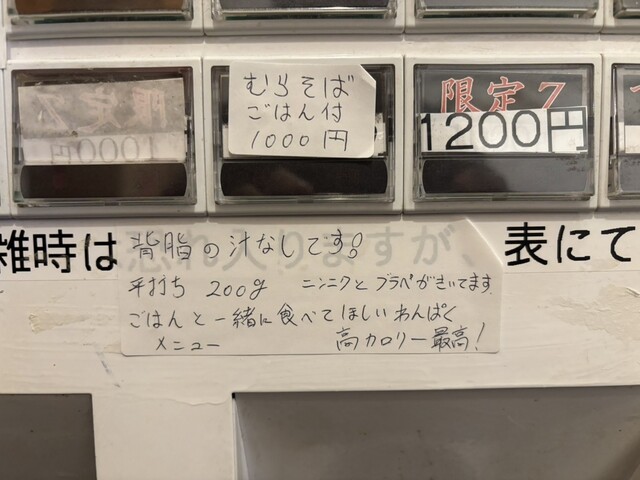 むらそば
ごはん付
1000円
限定Z
1200円
雑時は
恐れ入りますが、
表にて
背脂の汁なしです!
平打ち 200g ニンニクとブラペがきいてます
ごはんと一緒に食べてほしいわんぱく
メニュー 高カロリー最高!